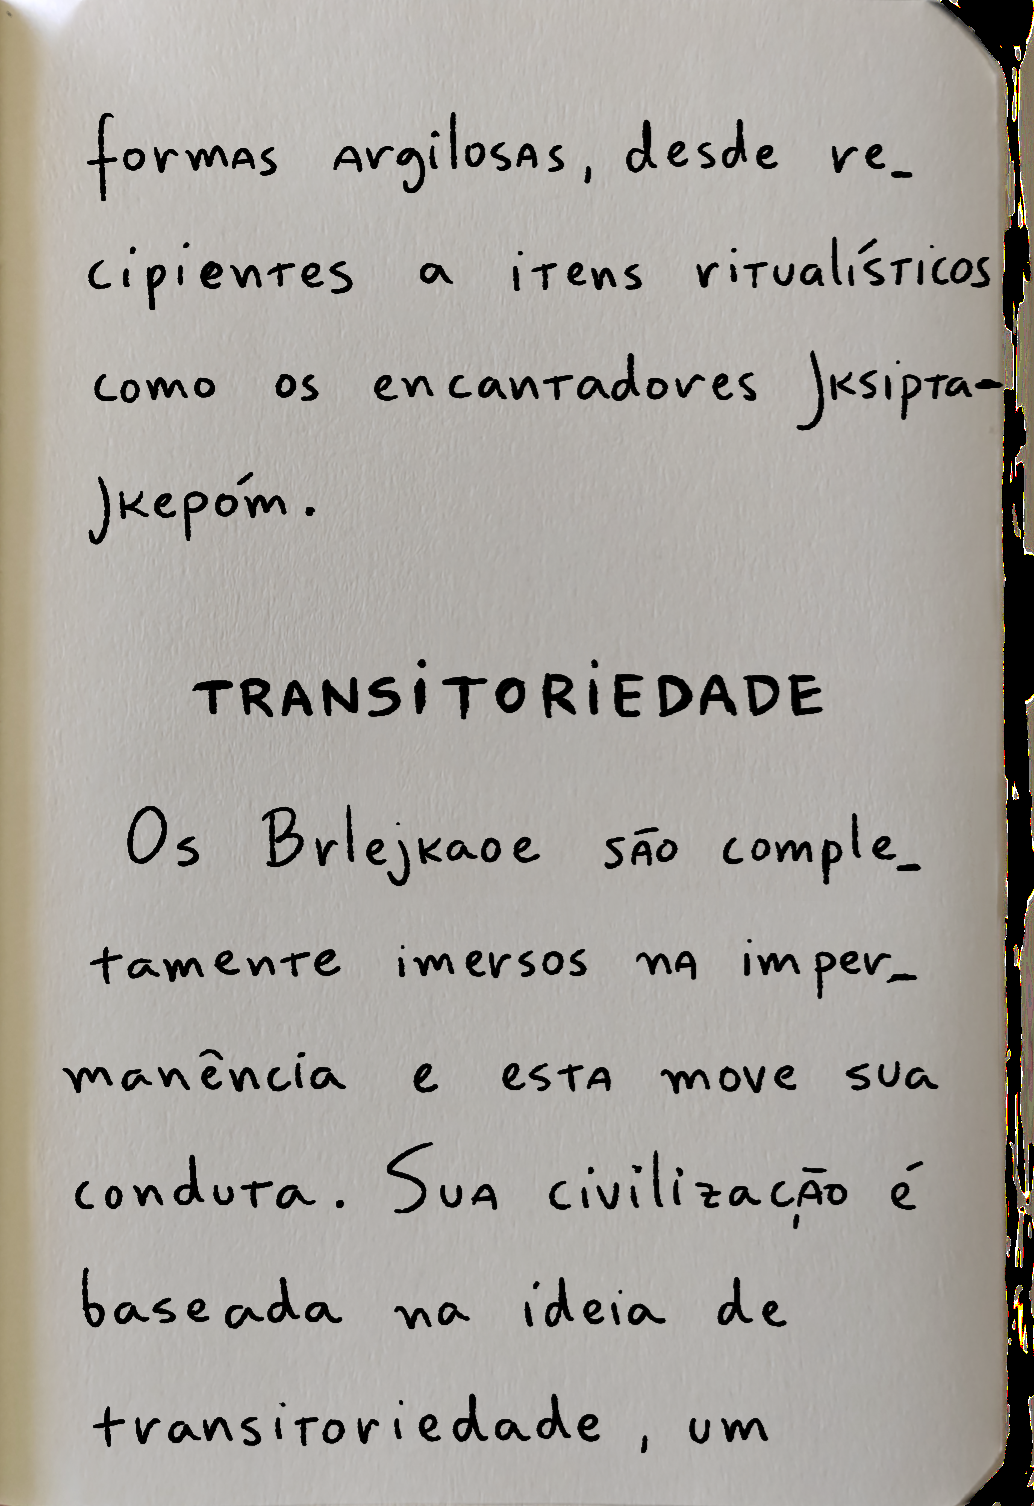 formas argilosas, desde re_
cipientes a itens ritualísticos
como os encantadores Jksipta-
Jkepóm.
TRANSITORIEDADE
Os Brlejkaoe são comple_
tamente imersos na imper_
manência e esta move sua
conduta. Sua civilização é
baseada na ideia de
transitoriedade, um